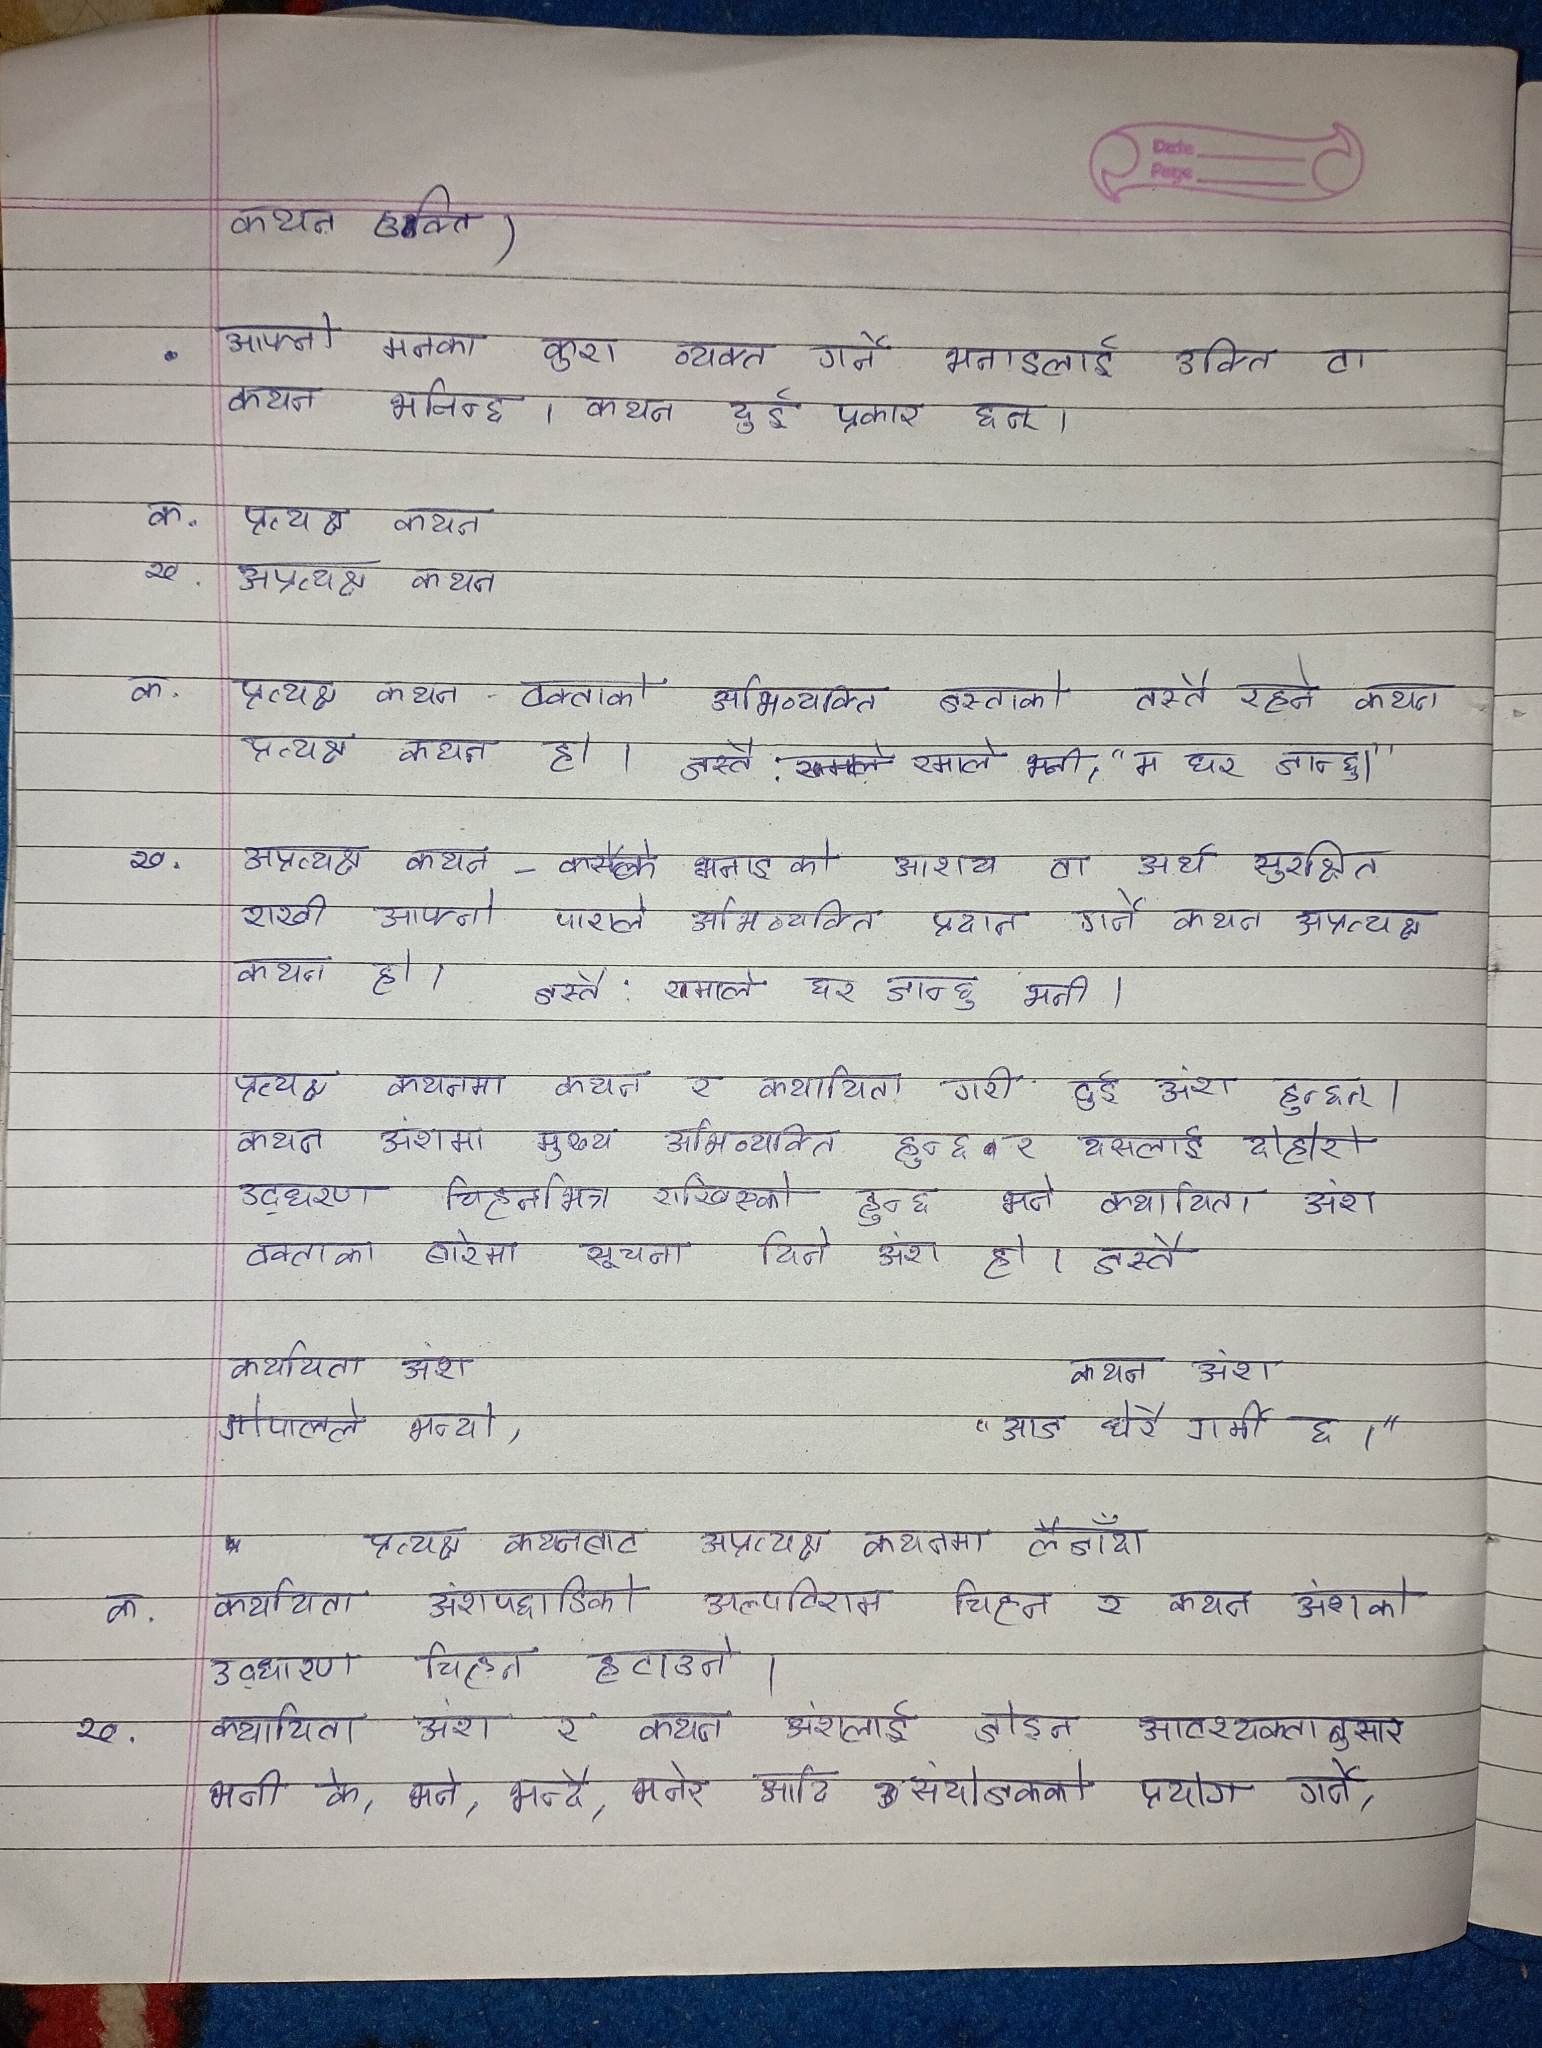 Date
Page
कथन (उक्ति)
• आफ्नो मनका कुरा व्यक्त गर्ने भनाइलाई उक्ति वा
कथन भनिन्छ । कथन दुई प्रकार छन् ।
क. प्रत्यक्ष कथन
ख. अप्रत्यक्ष कथन
क. प्रत्यक्ष कथन - वक्ताको अभिव्यक्ति जस्ताको तस्तै रहने कथन
प्रत्यक्ष कथन हो । जस्तै : रमाले भनी, "म घर जान्छु।"
ख. अप्रत्यक्ष कथन - कसैले भनाइको आशय वा अर्थ सुरक्षित
राखी आफ्नो पाराले अभिव्यक्ति प्रदान गर्ने कथन अप्रत्यक्ष
कथन हो । जस्तै : रामाले घर जान्छु भनी ।
प्रत्यक्ष कथनमा कथन र कथायिता गरी दुई अंश हुन्छन् ।
कथन अंशमा मुख्य अभिव्यक्ति हुन्छ र यसलाई दोहोरो
उद्धरण चिह्नभित्र राखिएको हुन्छ भने कथायिता अंश
वक्ताका बारेमा सूचना दिने अंश हो । जस्तै
कथयिता अंश कथन अंश
गोपालले भन्यो, "आज धेरै गर्मी छ ।"
* प्रत्यक्ष कथनबाट अप्रत्यक्ष कथनमा लैजाँदा
क. कथयिता अंशपछाडिको अल्पविराम चिह्न र कथन अंशको
उद्धारण चिह्न हटाउने ।
ख. कथायिता अंश र कथन अंशलाई जोड्न आवश्यकतानुसार
भनी के, भने, भन्दै, भनेर आदि संयोजकको प्रयोग गर्ने,